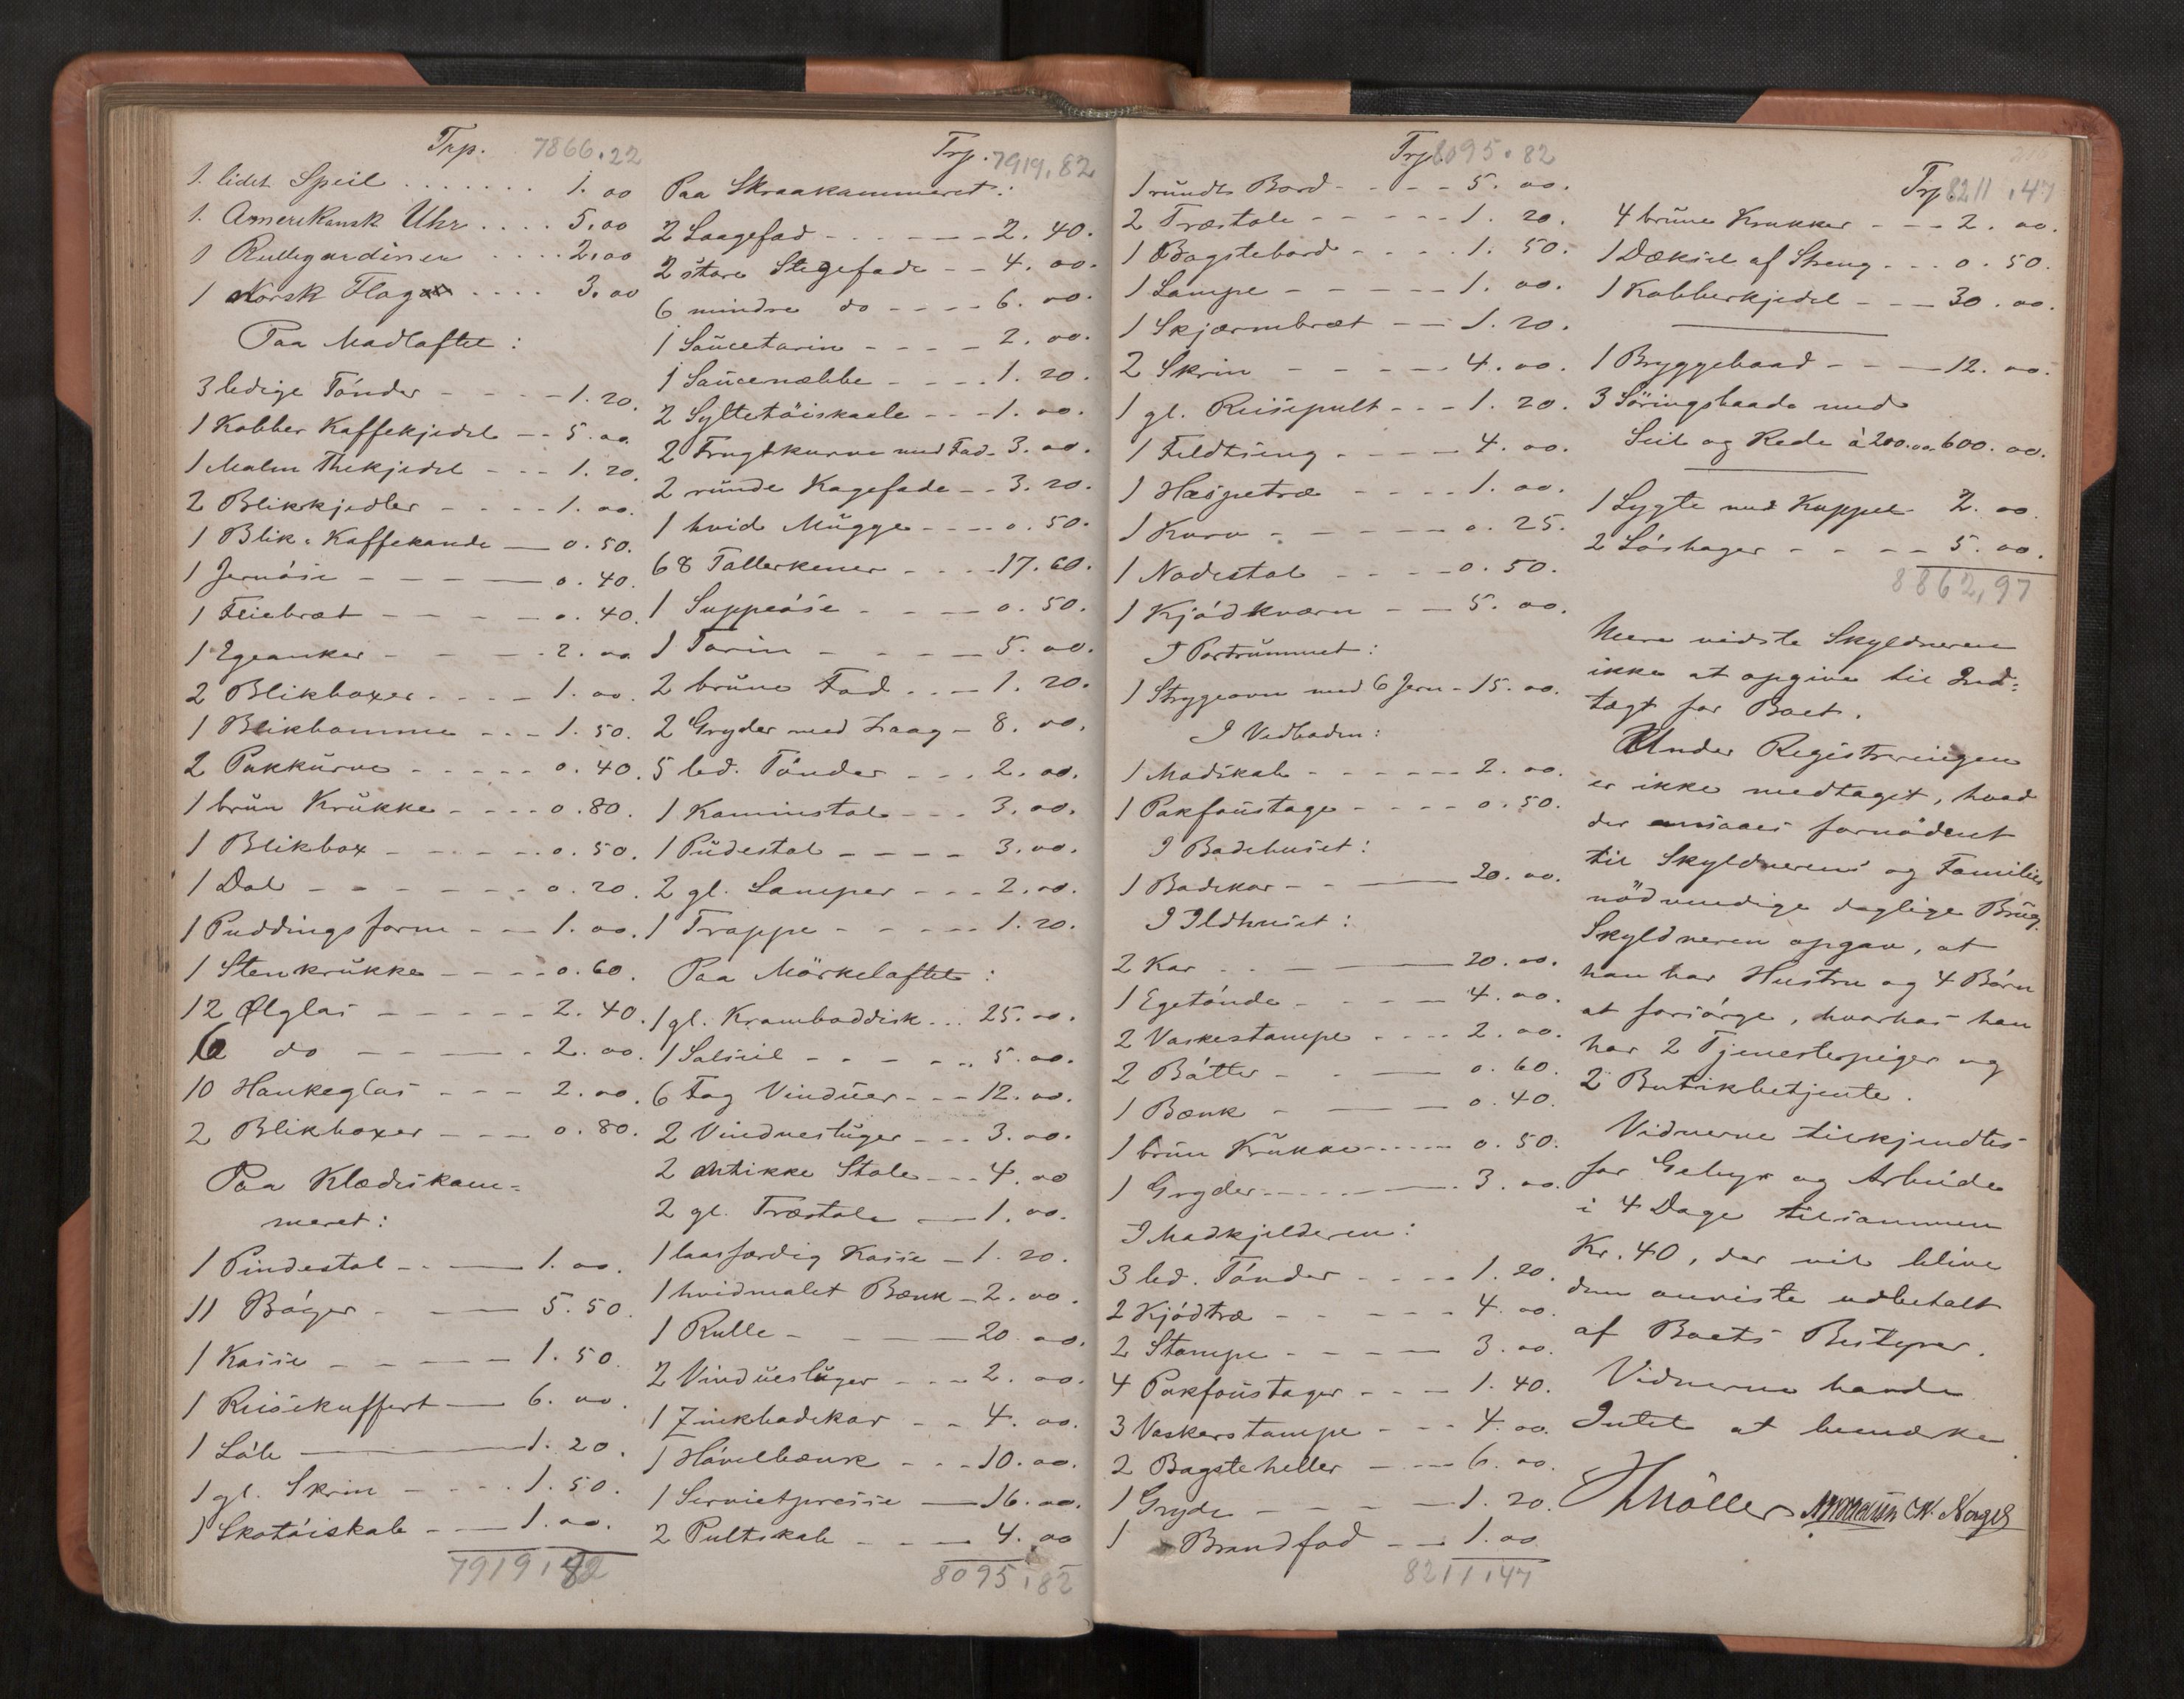 Trp. 7866.22
1. lidet Speil ....... 1.00
1. Amerikansk Uhr .... 5.00
1 Rullegardiner .... 2.00
1 Norsk Flag .... 3.00
Paa Madloftet:
3 ledige Tönder - - - - 1.20.
1 Kobber Kaffekjedel - - 5.00
1 Malm Thekjedel - - - 1.20.
2 Blikkjedler - - - - 1.00.
1 Blik-Kaffekande - 0.50.
1 Jernöse - - - - 0.40.
1 Feiebræt - - - - 0.40.
1 Egeanker - - - - 2.00
2 Blikboxer - - - - 1.00.
1 Blikkomme - - - 1.50.
2 Pakkurve - - - - - 0.40.
1 brun Krukke - - - - 0.80.
1 Blikbox - - - - - 0.50.
1 Dal - - - - - - 0.20.
1 Puddingsform - - 1.00.
1 Stenkrukke - - - - 0.60.
12 Ølglas - - - - - 2.40.
6 do - - - - 2.00.
10 Hankeglas - - - 2.00.
2 Blikboxer - - - 0.80.
Paa Klædeskam-
meret:
1 Pindestol - - - 1.00.
11 Böger - - - 5.50.
1 Kasse - - - - - 1.50.
1 Reisekuffert - 6.00.
1 Laas - 1.20.
1 gl. Skrin - - - - 1.50.
1 Skotöiskab - - - 1.00.
7919,82
Trp. 7919,82
Paa Skraakammeret:
2 Laagefad - - - - - 2.40.
2 store Stegefade - - 4.00.
6 mindre do - - - - 6.00.
1 Saucetarin - - - - 2.00.
1 Saucenæbbe - - - - 1.20.
2 Syltetöiskaale - - - 1.00.
2 Frugtkurve med Fad - 3.00.
2 runde Kagefade - - 3.20.
1 hvid Mugge - - - - 0.50.
68 Tallerkener - - - - 17.60.
1 Suppeöse - - - - 0.50.
1 Tarin - - - - 5.00.
2 brune Fad . . - 1.20.
2 Gryder med Laag - 8.00.
5 led. Tönder - - - 2.00.
1 Kaminstol - - - 3.00.
1 Pudestol - - - - 3.00.
2 gl. Lamper - - - 2.00.
1 Trappe - - - - - 1.20.
Paa Mörkeloftet:
1 gl. Kramboddisk ... 25.00.
1 Solseil - - - - - 5.00.
6 Fag Vinduer - - - 12.00.
2 Vinduesluger - - - 3.00.
2 antikke Stole - - - 4.00
2 gl. Træstole - 1.00.
1 laasfærdig Kasse - 1.20.
1 hvidmalet Bænk - 2.00.
1 Rulle - - - - 20.00.
2 Vinduesluger - - - 2.00.
1 Zinkbadekar - - 4.00.
1 Hövelbænk - - - 10.00.
1 Servietpresse - 16.00.
2 Pultskab - - - 4.00
8095,82
Trp. 8095.82
1 rundt Bord - - - - 5.00.
2 Træstole - - - - - 1.20.
1 Bagstebord - - - - 1.50.
1 Lampe - - - - - 1.00.
1 Skjærmbræt - - 1.20.
2 Skrin - - - - 4.00.
1 gl. Reisepult - - - 1.20.
1 Feldtseng - - - - 4.00.
1 Haspetræ - - - - 1.00.
1 Kurv - - - - - 0.25.
1 Nadestol - - - - 0.50.
1 Kjödkværn - - 5.00.
I Portrummet:
1 Strygeovn med 6 Jern - 15.00.
I Vedboden:
1 Madskab - - - - - 2.00.
1 Pakfoustage - - - - 0.50.
I Badehuset:
1 Badekar - - - 20.00.
I Ildhuset:
2 Kar - - - 20.00.
1 Egetönde - - - - 4.00.
2 Vasketampe - - - 2.00.
2 Bötter - - - 0.60.
1 Bænk - - - 0.40.
1 brun Krukke - - - 0.50.
1 Gryder - - - - 3.00.
I Madkjelderen:
3 led. Tönder - - - - 1.20.
2 Kjödtræ - - - - - 4.00.
2 Stampe - - - - 3.00.
4 Pakfoustager - - - 1.40.
3 Vaskerstampe - - - 4.00.
2 Bagsteheller - - - 6.00.
1 Gryde - - - - 1.20.
1 Brandfad - - 1.00
8211,47
Trp 8211,47
4 brune Krukker - - - 2.00.
1 Dæksel af Streng - - - 0.50.
1 Kobberkjedel - - - 30.00.
1 Bryggebaad - - - 12.00.
3 Söringsbaade med
Seil og Rede à 200.00 600.00.
1 Lygte med Kuppel - 2.00
2 Löshager - - - - 5.00.
8862,97
Mere vidste Skyldneren
ikke at opgive til Ind-
tægt for Boet.
Under Registreringen
er ikke medtaget, hvad
der ansaaes fornödent
til Skyldnerens og Families
nödvendige daglige Brug.
Skyldneren opgav, at
han har Hustru og 4 Börn
at forsörge, hvorhos han
har 2 Tjenestepiger og
2 Butikbetjente.
Vidnerne tilkjendtes
for Gebyr og Arbeide
i 4 Dage tilsammen
Kr. 40, der vil blive
dem anviste udbetalt
af Boets Bestyrer.
Vidnerne havde
Intet at bemærke
HMöller N. Nagel